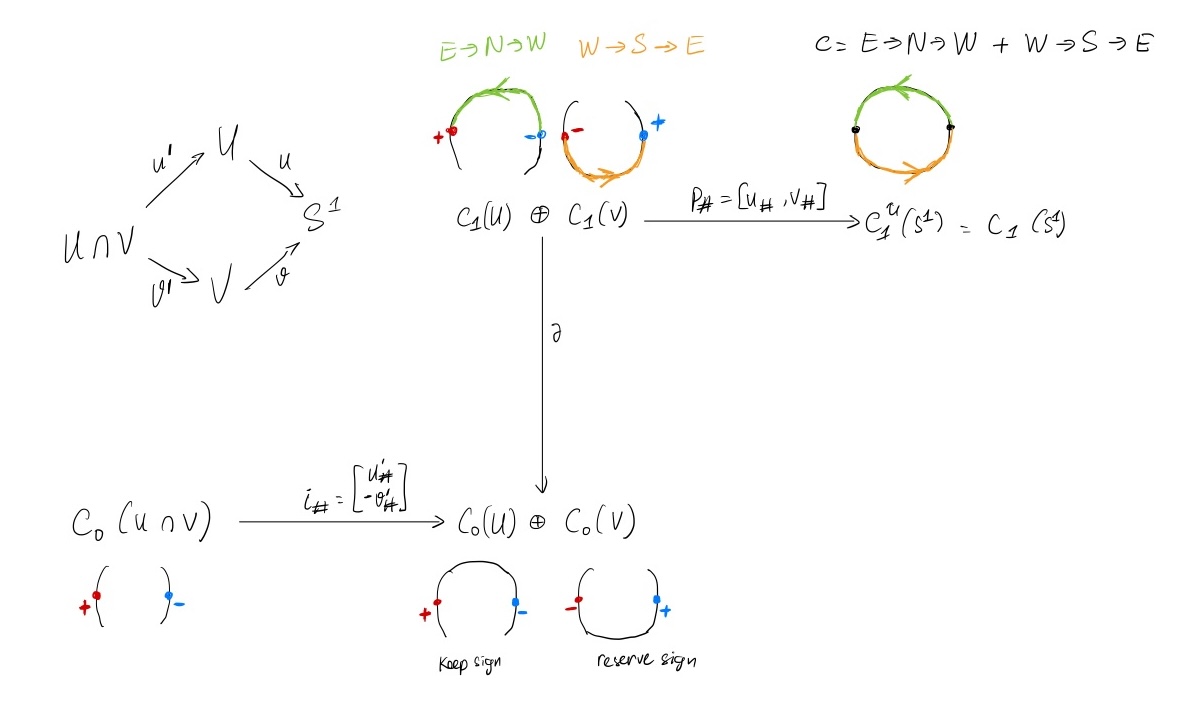 E→N→W W→S→E
C = E→N→W + W→S→E
+ - - +
U
u' u
U∩V S¹
v' v
V
C₁(U) ⊕ C₁(V) P# = [u#, v#] C₁ᵘ(S¹) = C₁(S¹)
∂
C₀(U∩V) i# = [u'# -v'#] C₀(U) ⊕ C₀(V)
+ - + - - +
Keep sign reserve sign